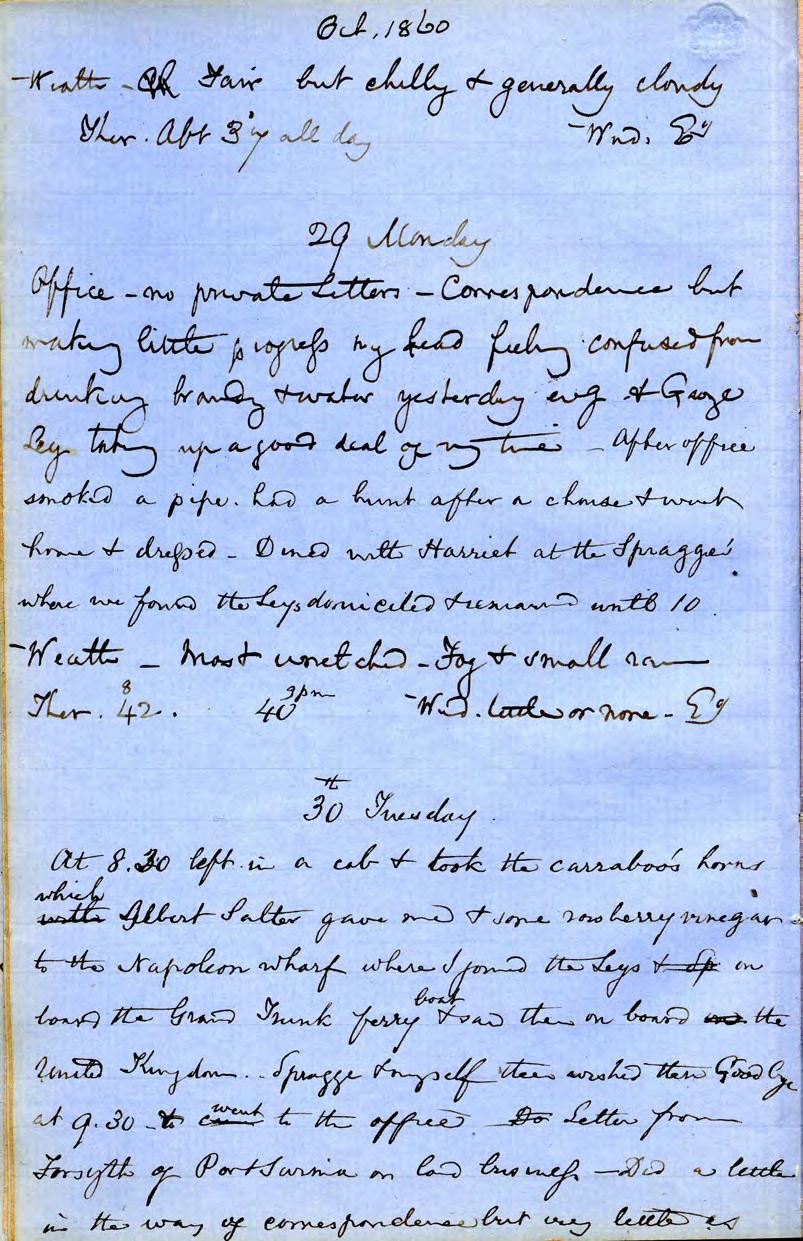 Oct, 1860
Weathr - Fair but chilly & generally cloudy
Ther. Abt 37 all day Wnd. Ey
29 Monday
Office - no private Letters - Correspondence but
making little progress my head feeling confused from
drinking brandy & water yesterday evg & George
Ley taking up a good deal of my time - After office
smoked a pipe. had a hunt after a chaise & went
home & dressed - Dined with Harriet at the Spragge's
where we found the Leys domiciled & remained until 10
Weathr - Most wretched - Fog & small rain
Ther. 8 42. 40 3pm Wnd. little or none - Ey
30th Tuesday
At 8.30 left in a cab & took the carraboo's horns
which Albert Salter gave me & some vinegar
to the Napoleon wharf where I joined the Leys & Sp on
board the Grand Trunk ferry boat & saw them on board the
United Kingdom. Spragge & myself then wished them Good bye
at 9.30 to came went to the office Do Letter from
Forsyth of Port Sarnia on land business - Did a little
in the way of correspondence but very little as